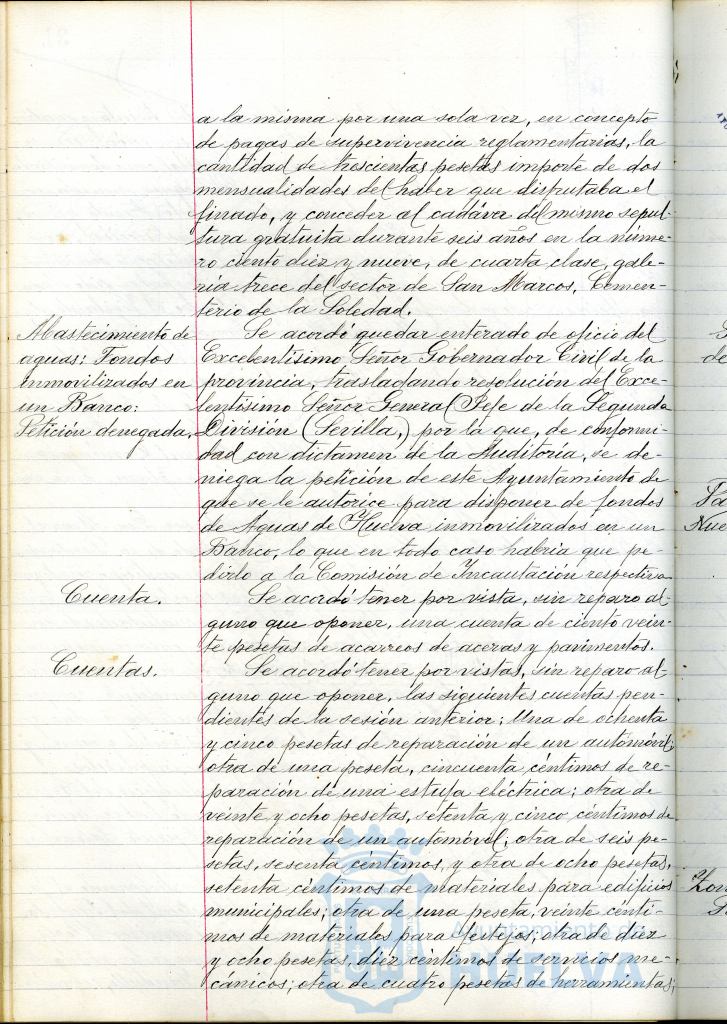 a la misma por una sola vez, en concepto
de pagas de supervivencia reglamentarias, la
cantidad de trescientas pesetas importe de dos
mensualidades del haber que disfrutaba el
finado, y conceder al cadáver del mismo sepul-
tura gratuita durante seis años en la núme-
ro ciento diez y nueve, de cuarta clase, gale-
ría trece del sector de San Marcos, Cemen-
terio de la Soledad.
Abastecimiento de
aguas: Fondos
inmovilizados en
un Banco:
Petición denegada.
Se acordó quedar enterado de oficio del
Excelentísimo Señor Gobernador Civil de la
provincia, trasladando resolución del Exce-
lentísimo Señor General Jefe de la Segunda
División (Sevilla,) por la que, de conformi-
dad con dictamen de la Auditoría, se de-
niega la petición de este Ayuntamiento de
que se le autorice para disponer de fondos
de Aguas de Huelva inmovilizados en un
Banco, lo que en todo caso habría que pe-
dirlo a la Comisión de Incautación respectiva.
Cuenta.
Se acordó tener por vista, sin reparo al-
guno que oponer, una cuenta de ciento vein-
te pesetas de acarreos de aceras y pavimentos.
Cuentas.
Se acordó tener por vistas, sin reparo al-
guno que oponer, las siguientes cuentas pen-
dientes de la sesión anterior: Una de ochenta
y cinco pesetas de reparación de un automóvil;
otra de una peseta, cincuenta céntimos de re-
paración de una estufa eléctrica; otra de
veinte y ocho pesetas, setenta y cinco céntimos de
reparación de un automóvil; otra de seis pe-
setas, sesenta céntimos, y otra de ocho pesetas,
setenta céntimos de materiales para edificios
municipales; otra de una peseta, veinte cénti-
mos de materiales para festejos; otra de diez
y ocho pesetas, diez céntimos de servicios me-
cánicos; otra de cuatro pesetas de herramientas;
Ayuntamiento de
HUELVA